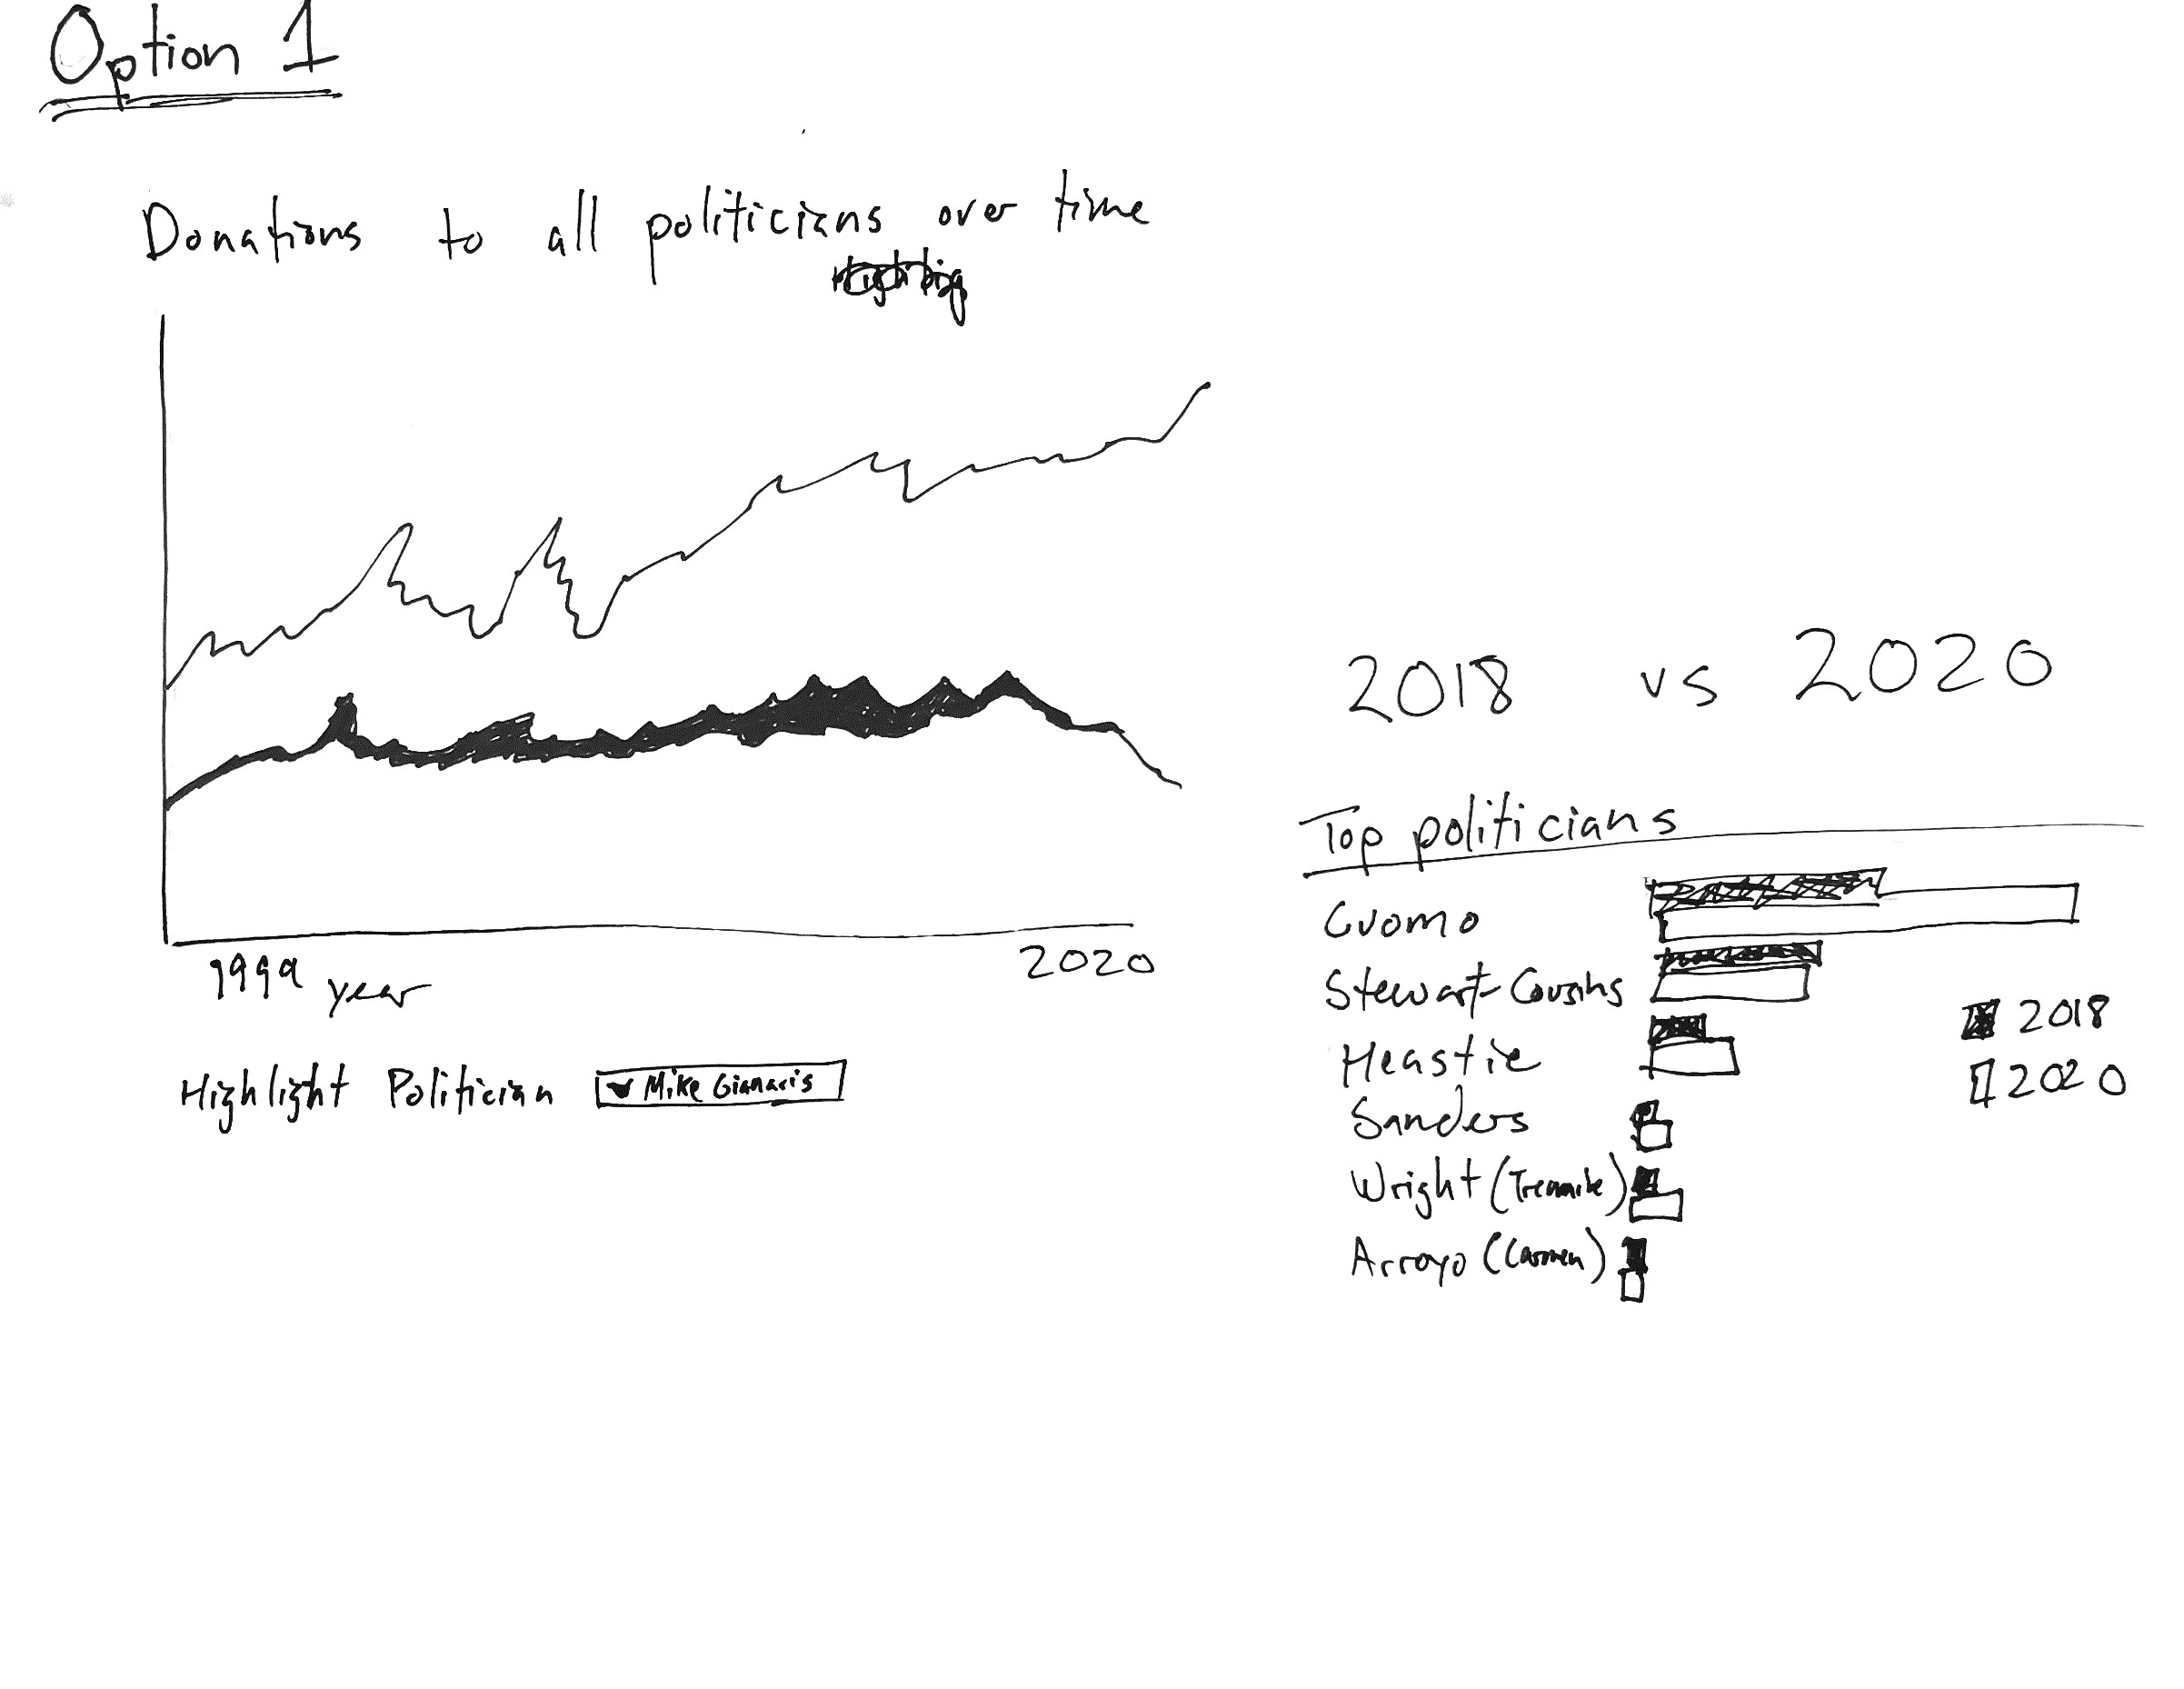 Option 1
Donations to all politicians over time
1999 year
2020
Highlight Politician Mike Gianaris
2018 vs 2020
Top politicians
Cuomo
Stewart-Cousins
Heastie
Sanders
Wright (Tremaine)
Arroyo (Carmen)
2018
2020